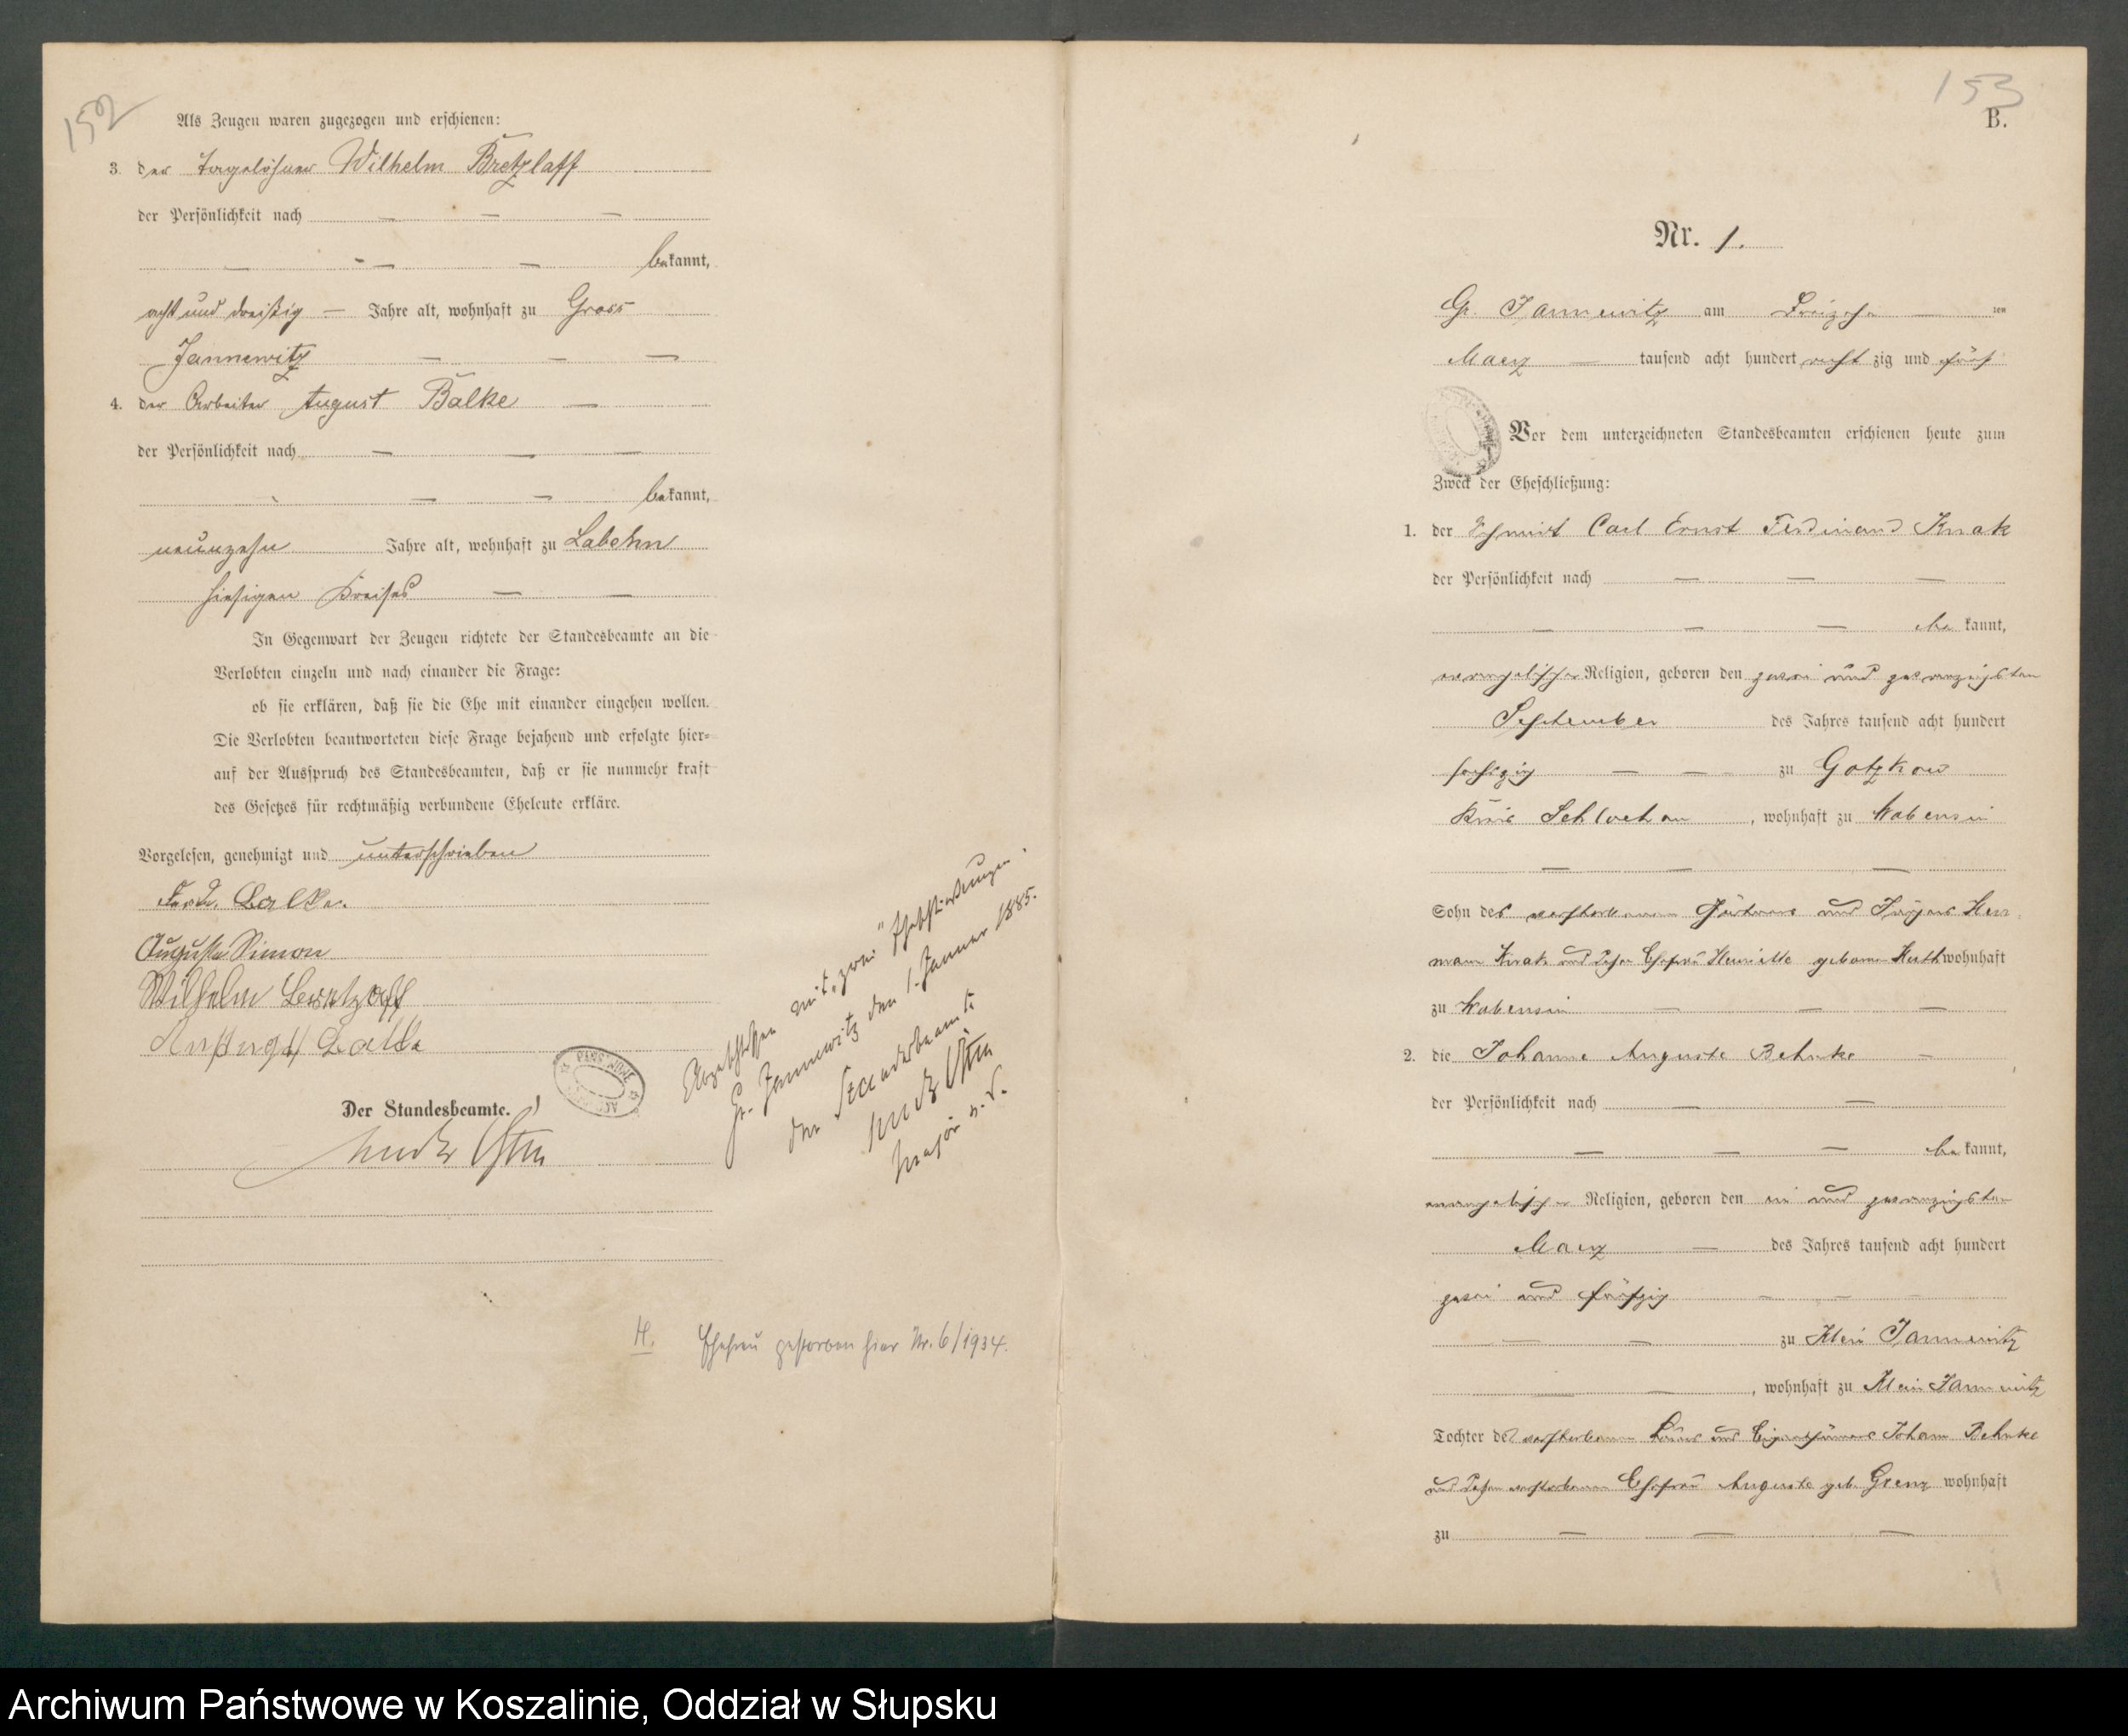 152
Als Zeugen waren zugezogen und erschienen:
3. der Tagelöhner Wilhelm Bretzlaff
der Persönlichkeit nach
bekannt,
acht und dreißig Jahre alt, wohnhaft zu Gross
Jannewitz
4. der Arbeiter August Balke
der Persönlichkeit nach
bekannt,
neunzehn Jahre alt, wohnhaft zu Labehn
hiesigen Kreises
In Gegenwart der Zeugen richtete der Standesbeamte an die
Verlobten einzeln und nach einander die Frage:
ob sie erklären, daß sie die Ehe mit einander eingehen wollen.
Die Verlobten beantworteten diese Frage bejahend und erfolgte hier-
auf der Ausspruch des Standesbeamten, daß er sie nunmehr kraft
des Gesetzes für rechtmäßig verbundene Eheleute erkläre.
Vorgelesen, genehmigt und unterschrieben
Ferd. Balke.
Auguste Simon
Wilhelm Bretzlaff
August Balke
Der Standesbeamte.
Abgeschlossen mit "zwei" Eheschließungen.
Gr. Jannewitz den 1. Januar 1885.
Der Standesbeamte
Major a. D.
H. Ehefrau gestorben hier Nr. 6/1934.
153
B.
Nr. 1.
Gr. Jannewitz am Dreizehn ten
Maerz tausend acht hundert acht zig und fünf
Vor dem unterzeichneten Standesbeamten erschienen heute zum
Zweck der Eheschließung:
1. der Schmied Carl Ernst Ferdinand Knak
der Persönlichkeit nach
be kannt,
evangelischer Religion, geboren den zwei und zwanzigsten
September des Jahres tausend acht hundert
sechszig zu Gotzkow
Kreis Schlochau, wohnhaft zu Wobensin
Sohn des verstorbenen Gärtners und Jägers Her-
mann Knak und dessen Ehefrau Henriette geborne Huth wohnhaft
zu Wobensin
2. die Johanne Auguste Behnke
der Persönlichkeit nach
be kannt,
evangelischer Religion, geboren den ein und zwanzigsten
Maerz des Jahres tausend acht hundert
zwei und fünfzig
zu Klein Jannewitz
, wohnhaft zu Klein Jannewitz
Tochter des verstorbenen und Eigenthümers Johann Behnke
und dessen verstorbenen Ehefrau Auguste geb. Grenz wohnhaft
zu
Archiwum Państwowe w Koszalinie, Oddział w Słupsku